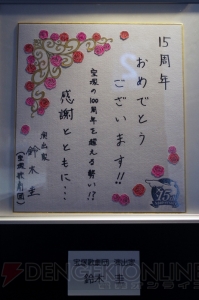 15周年
おめでとう
ございます!!
宝塚の100周年を超える勢い!?
感謝とともに…
演出家
鈴木圭
(宝塚歌劇団)
15th
宝塚歌劇団 演出家
鈴木 圭
DENGEKIONLINE